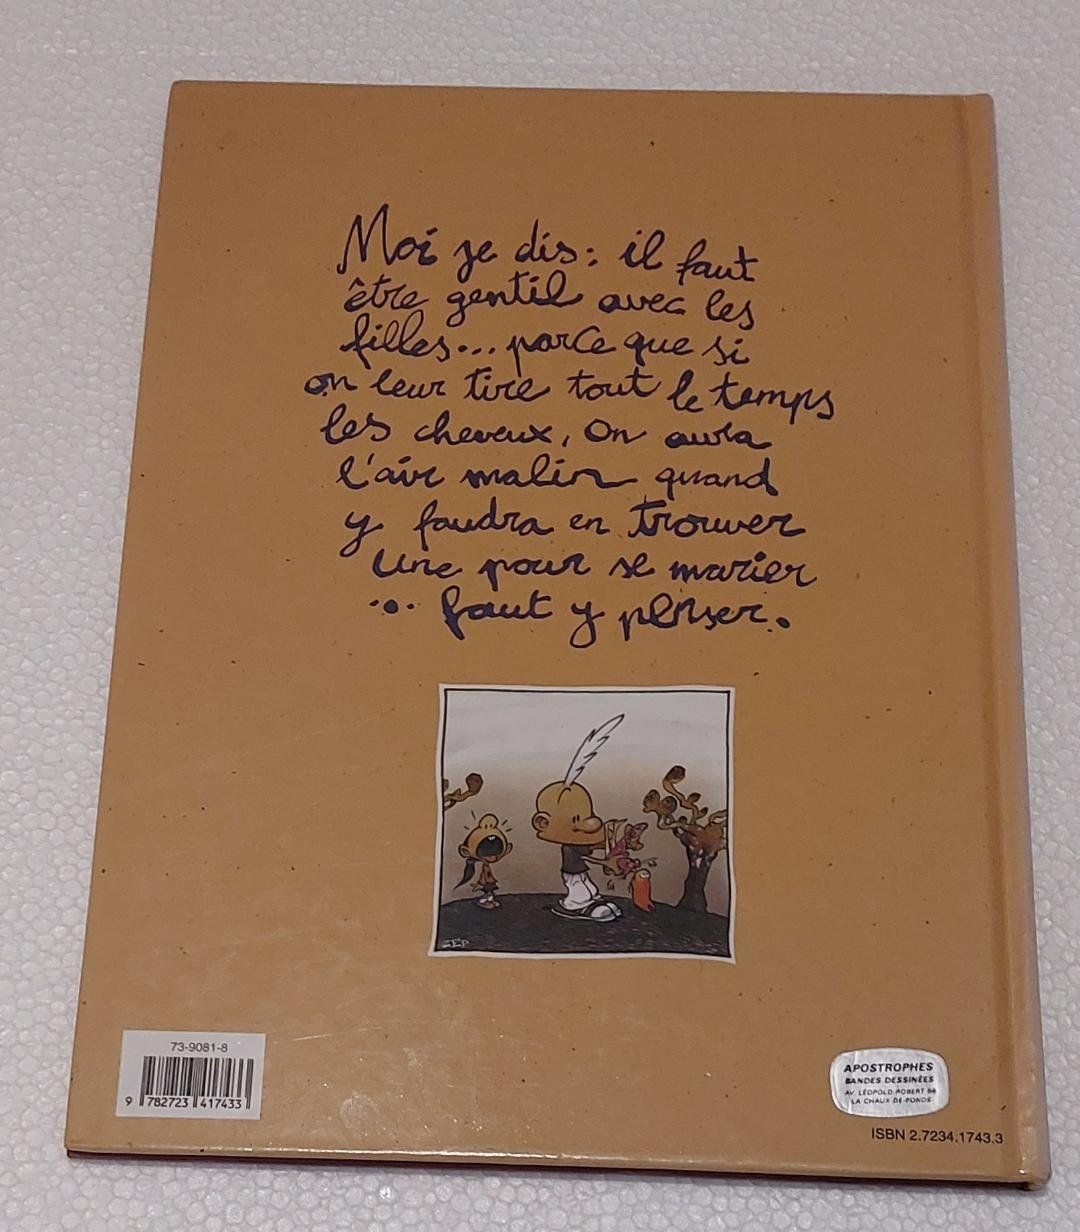 Moi je dis : il faut
être gentil avec les
filles... parce que si
on leur tire tout le temps
les cheveux, on aura
l'air malin quand
y faudra en trouver
une pour se marier
... faut y penser.
ZEP
73-9081-8
9 782723 417433
APOSTROPHES
BANDES DESSINÉES
AV. LÉOPOLD-ROBERT
LA CHAUX-DE-FONDS
ISBN 2.7234.1743.3